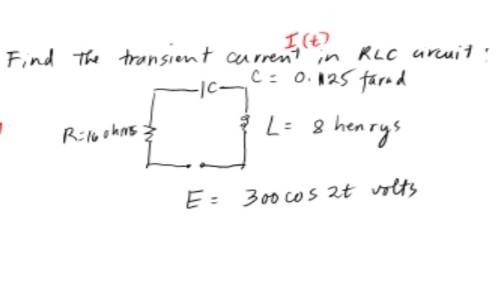 I(t)
Find the transient current in RLC circuit :
C = 0.125 farad
C
R=16 ohms
L = 8 henrys
E = 300 cos 2t volts